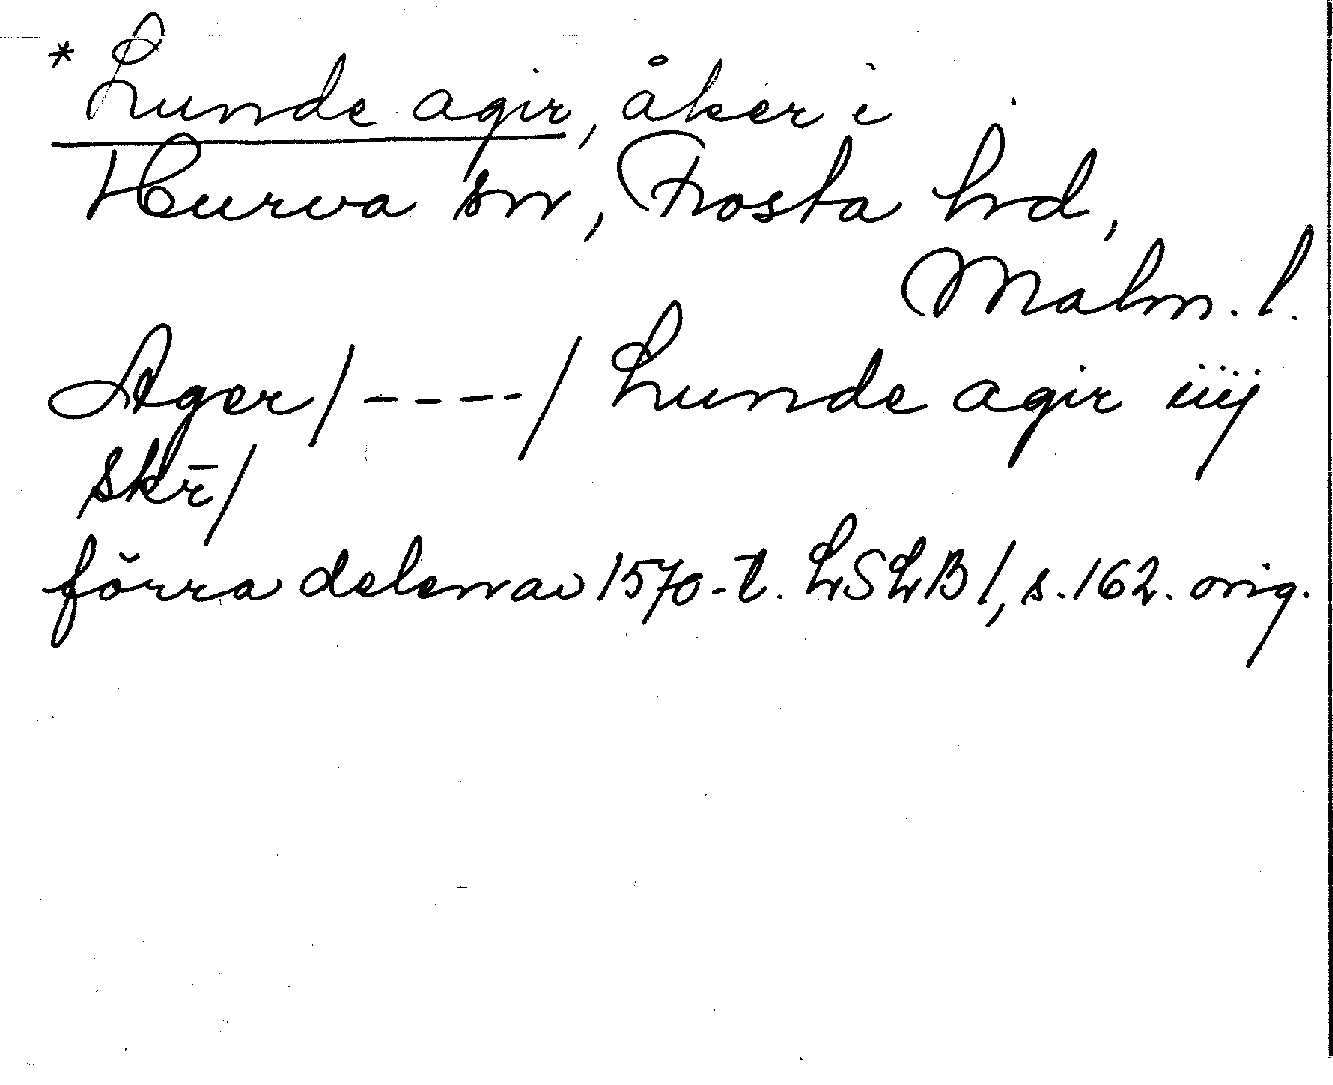 * Lunde agir, åker i
Hurva sn, Frosta hd,
Malm. l.
Ager/----/ Lunde agir iiij
skr̄/
förra delen av 1570-t. LSLB 1, s. 162. orig.